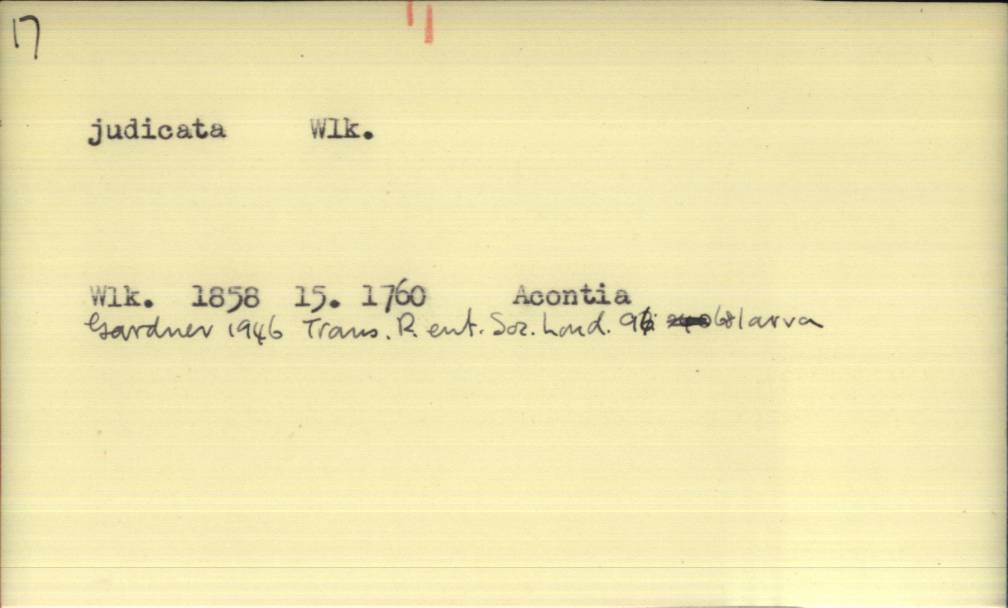 17
judicata Wlk.
Wlk. 1858 15. 1760 Acontia
Gardner 1946 Trans. R. ent. Soc. Lond. 96 68 larva